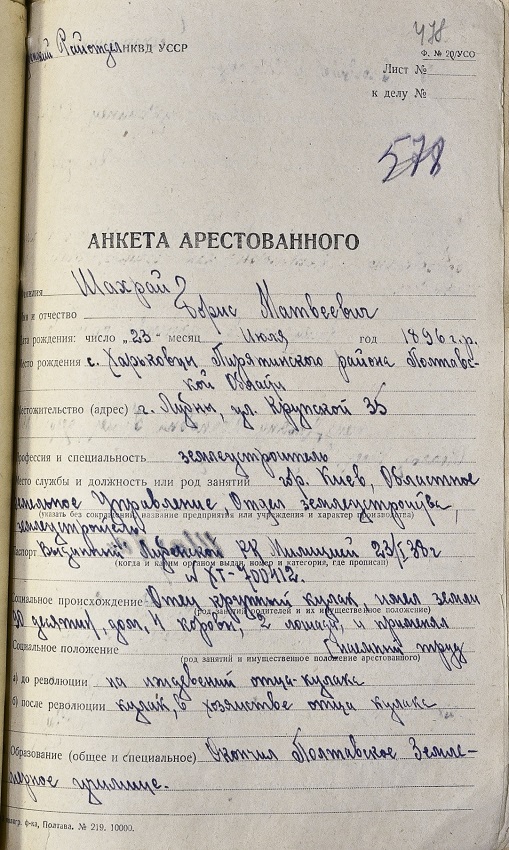 Райотдел НКВД УССР
478
Ф. № 20/УСО
Лист №
к делу №
578
АНКЕТА АРЕСТОВАННОГО
Шахрай
и отчество Борис Матвеевич
рождения: число „23- месяц Июля год 1896 г.р.
рождения с. Харьковцы, Пирятинского района Полтавс-
кой Области
(адрес) г. Лубны, ул. Крупской 35
и специальность землеустроитель
службы и должность или род занятий гор. Киев, Областное
Управление, Отдел землеустройства
(указать без сокращений, название предприятия или учреждения и характер производства)
землеустроитель
Паспорт Выданный РК Милицией 23/I
(когда и каким органом выдан, номер и категория, где прописан)
№ 700412.
Социальное происхождение Отец крупный кулак имел земли
(род занятий родителей и их имущественное положение)
30 десятин, дом, 4 коровы, 2 лошади, и применял
Социальное положение наемный труд
(род занятий и имущественное положение арестованного)
а) до революции на иждевений отца-кулака
б) после революции кулак, в хозяйстве отца кулака
Образование (общее и специальное) Окончил Полтавское Земле-
мерное училище.
ф-ка, Полтава. № 219. 10000.